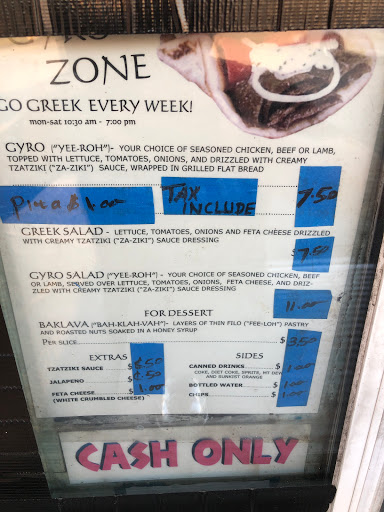 GYRO
ZONE
GO GREEK EVERY WEEK!
mon-sat 10:30 am - 7:00 pm
GYRO ("YEE-ROH")- YOUR CHOICE OF SEASONED CHICKEN, BEEF OR LAMB,
TOPPED WITH LETTUCE, TOMATOES, ONIONS, AND DRIZZLED WITH CREAMY
TZATZIKI ("ZA-ZIKI") SAUCE, WRAPPED IN GRILLED FLAT BREAD
Pita $1.00 TAX INCLUDE 7.50
GREEK SALAD - LETTUCE, TOMATOES, ONIONS AND FETA CHEESE DRIZZLED
WITH CREAMY TZATZIKI ("ZA-ZIKI") SAUCE DRESSING
$7.50
GYRO SALAD ("YEE-ROH") - YOUR CHOICE OF SEASONED CHICKEN, BEEF
OR LAMB, SERVED OVER LETTUCE, TOMATOES, ONIONS, FETA CHEESE, AND DRIZ-
ZLED WITH CREAMY TZATZIKI ("ZA-ZIKI") SAUCE DRESSING
11.00
FOR DESSERT
BAKLAVA ("BAH-KLAH-VAH")- LAYERS OF THIN FILO ("FEE-LOH") PASTRY
AND ROASTED NUTS SOAKED IN A HONEY SYRUP
PER SLICE $3.50
EXTRAS
TZATZIKI SAUCE $.50
JALAPENO $.50
FETA CHEESE $1.00
(WHITE CRUMBLED CHEESE)
SIDES
CANNED DRINKS $1.00
COKE, DIET COKE, SPRITE, MT DEW
AND SUNKIST ORANGE
BOTTLED WATER $1.00
CHIPS $1.00
CASH ONLY